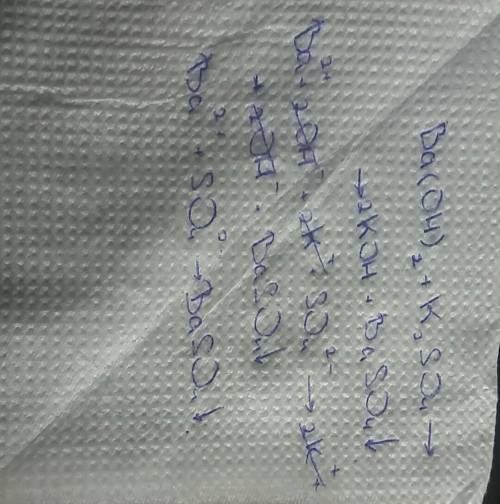 Ba(OH)₂ + K₂SO₄ →
→ 2KOH + BaSO₄↓
Ba²⁺ + 2OH⁻ + 2K⁺ + SO₄²⁻ → 2K⁺
+ 2OH⁻ + BaSO₄↓
Ba²⁺ + SO₄²⁻ → BaSO₄↓